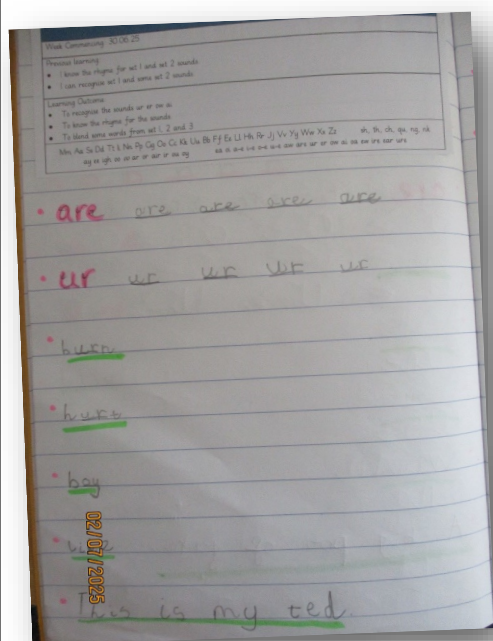 Week Commencing: 30.06.25
Previous learning
• I know the rhyme for set 1 and set 2 sounds
• I can recognise set 1 and some set 2 sounds
Learning Outcome
• To recognise the sounds ur er ow ai
• To know the rhyme for the sounds
• To blend some words from set 1, 2 and 3
Mm Aa Ss Dd Tt Ii Nn Pp Gg Oo Cc Kk Uu Bb Ff Ee Ll Hh Rr Jj Vv Yy Ww Xx Zz sh, th, ch, qu, ng, nk
ay ee igh ow oo oo ar or air ir ou oy
• are are are are are
• ur ur ur ur ur
• burn
• hurt
• boy
• This is my ted.
02/07/2025